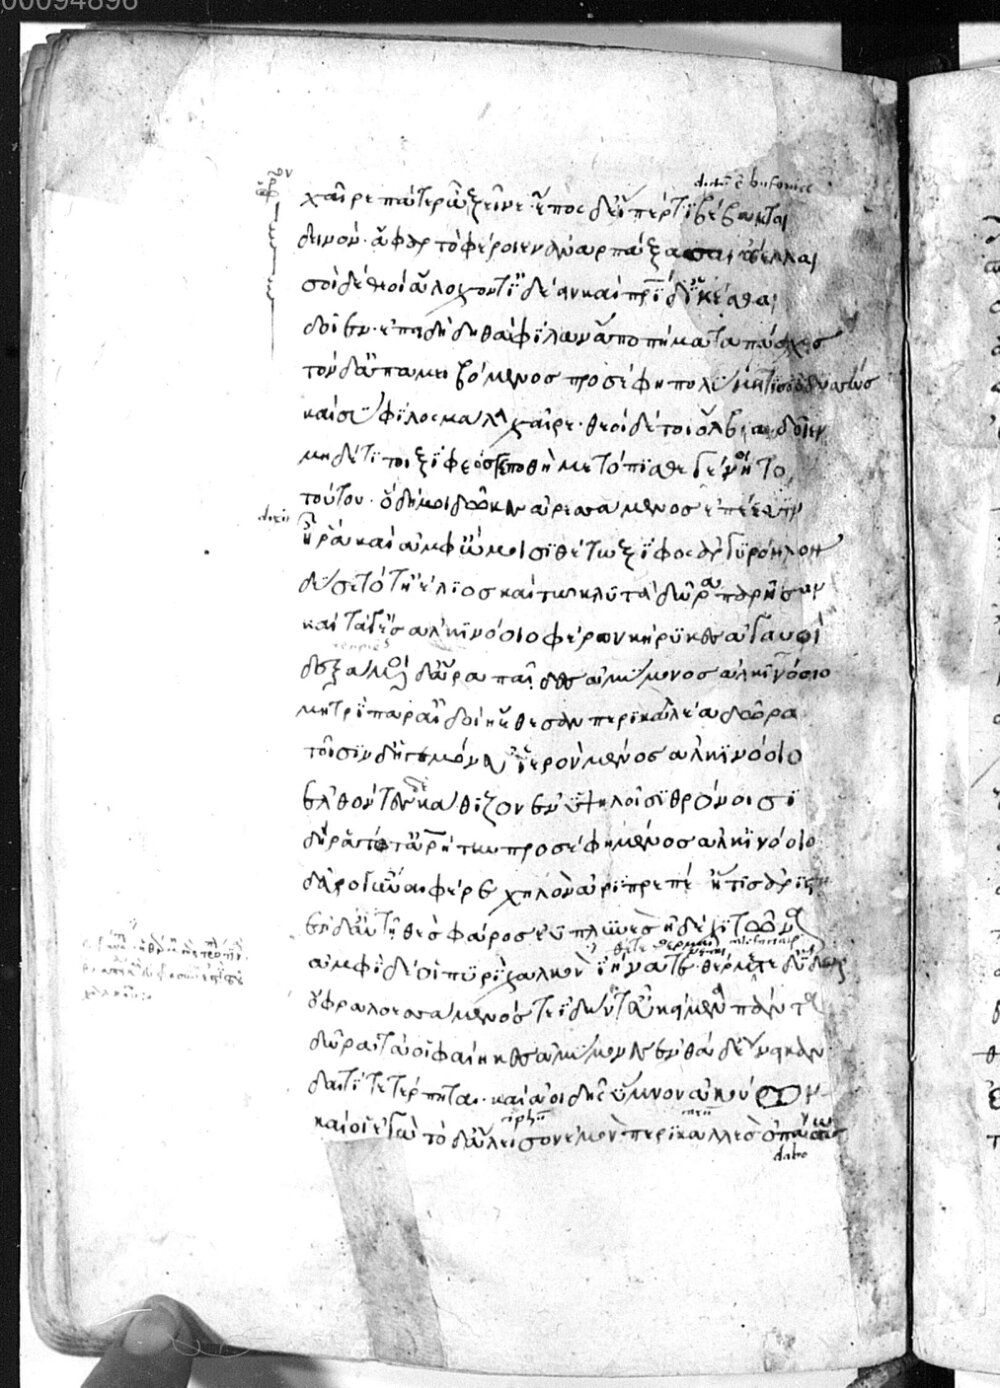 00094896
χαῖρε πάτερ ὦ ξεῖνε· ἔπος δεἴπερ τϊ βέβακται
δεινόν· ἄφαρ τὸ φέροιεν ἀναρπάξασαι ἄελλαι
σοὶ δὲ θεοὶ ἄλοχόν τϊδέειν καὶ πρΐδ ἱκέσθαι
δοῖεν· ἐπειδὴ δηθὰ φίλων ἄπο πήματα πάσχεις
τὸν δ ἀπαμειβόμενος προσέφη πολύμητις ὀδυσσεύς
καὶ σὺ φίλος μαλα χαῖρε· θεοὶ δέ τοι ὄλβια δοῖεν
μηδέ τϊ τοι ξίφεός γε ποθὴ μετόπισθε γένοιτο
τούτου· ὃ δή μοι δῶκας ἀρεσσάμενος ἐπέεσσϊν
ἦ ρα καὶ ἀμφ ὤμοισϊ θέτω ξίφος ἀργυρόηλον
δύσετό τ ἠέλϊος καὶ τῶ κλυτὰ δῶρα παρῆσαν
καὶ τάγ ἐς ἀλκινόοιο φέρον κήρυκες ἀγαυοί
δεξάμενοι δ ἄρα παῖδες ἀμύμονος ἀλκινόοιο
μητρὶ παρ αἰδοίη ἔθεσαν περικαλλέα δῶρα
τοῖσϊν δ ἡγεμόνευ ἱερὸν μένος ἀλκινόοιο
ἐλθόντες δὲ καθῖζον ἐν ὑψηλοῖσϊ θρόνοισϊ
δή ρα τότ ἀρήτην προσέφη μένος ἀλκινόοιο
δεῦρο γύναι φέρε χηλὸν ἀριπρεπέ ἥτις ἀρίστη
ἐν δ αὐτὴ θὲς φᾶρος ἐϋπλυνὲς ἠδὲ χιτῶνα
ἀμφὶ δέ οἱ πυρὶ χαλκὸν ἰήνατε· θέρμετε δ ὕδωρ
ὄφρα λοεσσάμενός τε ἰδών τ εὖ κείμενα πάντα
δῶρα τά οἱ φαίηκες ἀμύμονες ἐνθάδ ἔνεικαν
δαιτί τε τέρπηται· καὶ ἀοιδῆς ὕμνον ἀκούων
καί οἱ ἐγὼ τόδ ἄλεισον ἐμὸν περικαλλὲς ὀπάσσω
dabo